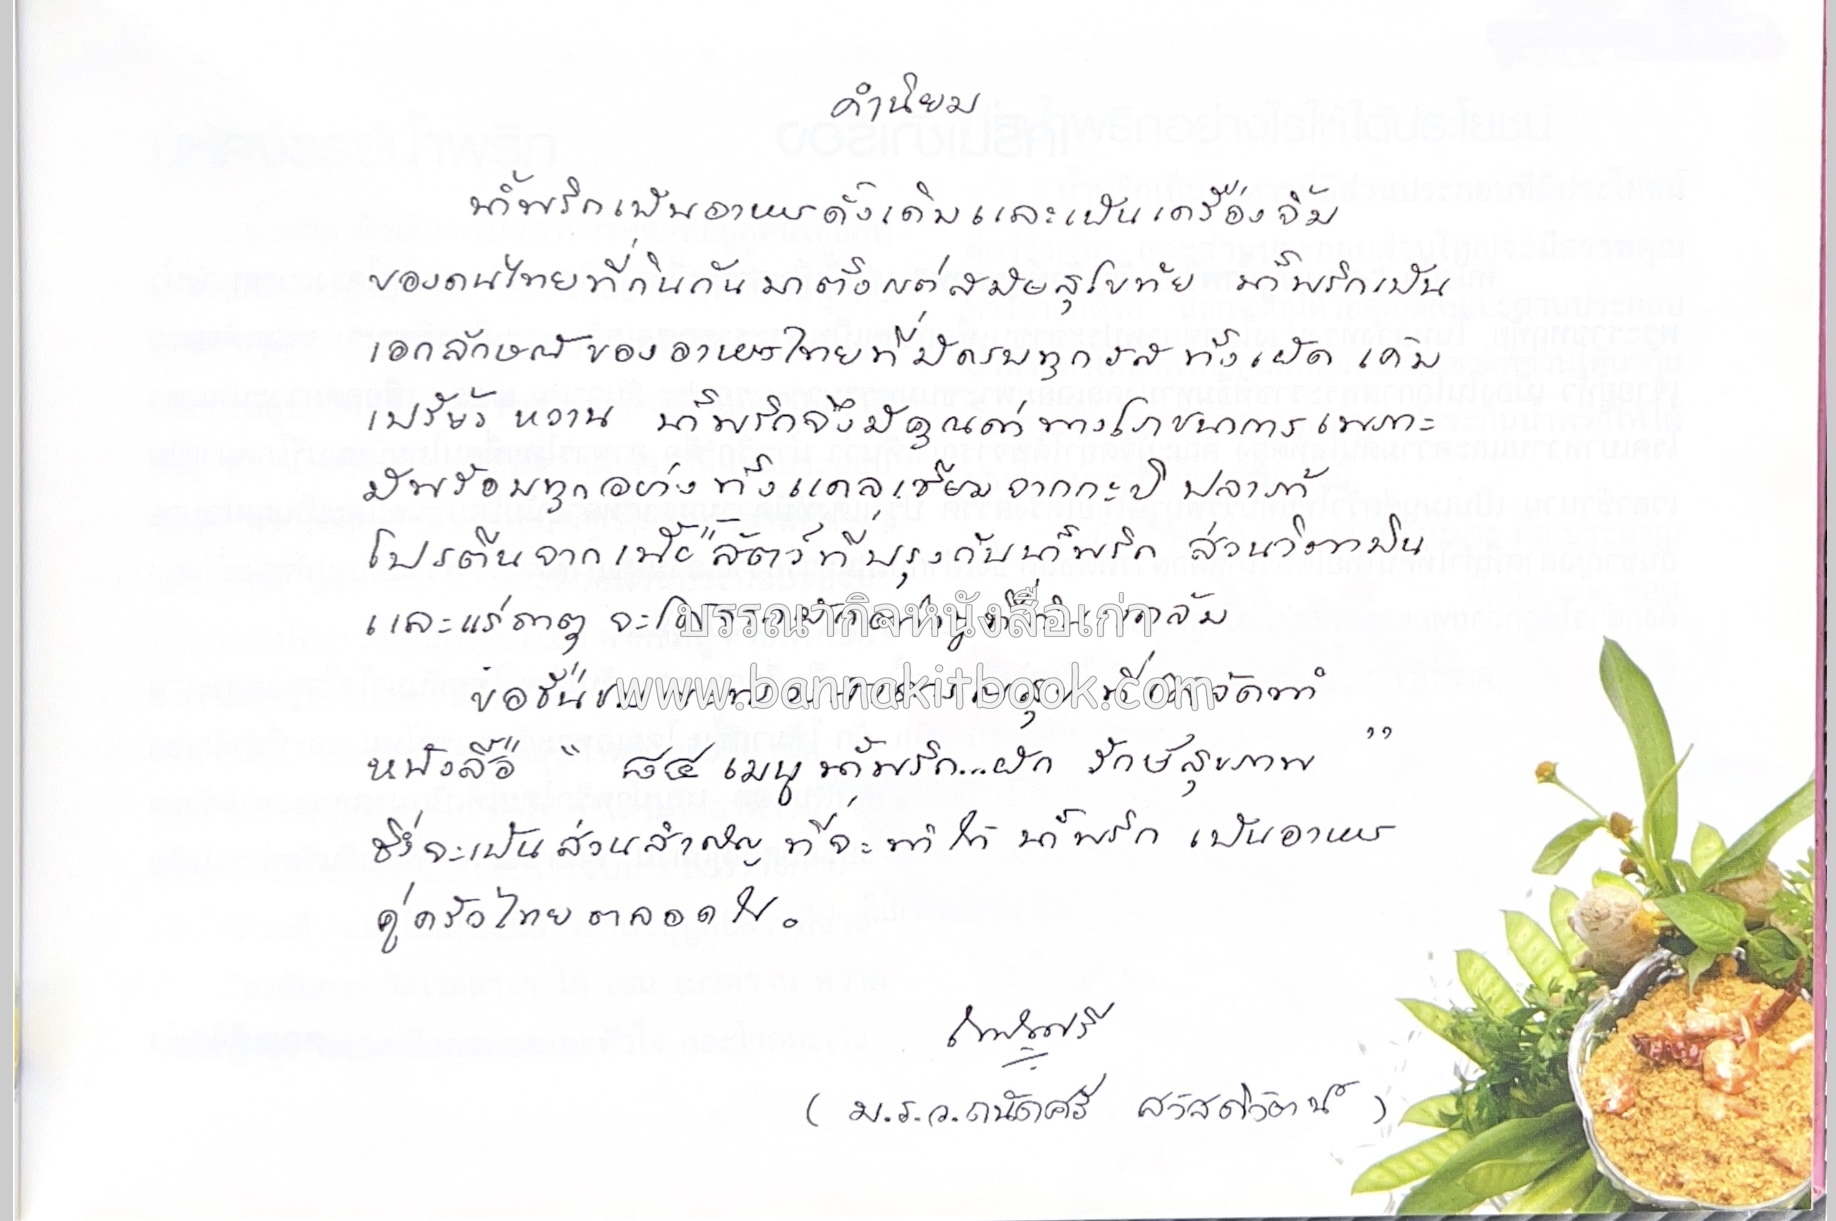 คำนิยม
น้ำพริกเป็นอาหารดั้งเดิมและเป็นเครื่องจิ้ม
ของคนไทยที่กินกันมาตั้งแต่สมัยสุโขทัย น้ำพริกเป็น
เอกลักษณ์ของอาหารไทยที่มีครบทุกรสทั้งเผ็ด เค็ม
เปรี้ยว หวาน น้ำพริกจึงมีคุณค่าทางโภชนาการเพราะ
มีพร้อมทุกอย่าง ทั้งแคลเซียมจากกะปิ ปลาร้า
โปรตีนจากเนื้อสัตว์ที่ปรุงกับน้ำพริก ส่วนวิตามิน
และแร่ธาตุ จะได้จากผัก
บรรณากิจหนังสือเก่า
ขอชื่นชม ที่ได้จัดทำ
www.bannakitbook.com
หนังสือ " ๘๔ เมนูน้ำพริก...ผัก รักษ์สุขภาพ "
ซึ่งจะเป็นส่วนสำคัญ ที่จะทำให้ น้ำพริก เป็นอาหาร
คู่ครัวไทยตลอดไป.
( ม.ร.ว.ถนัดศรี สวัสดิวัตน์ )